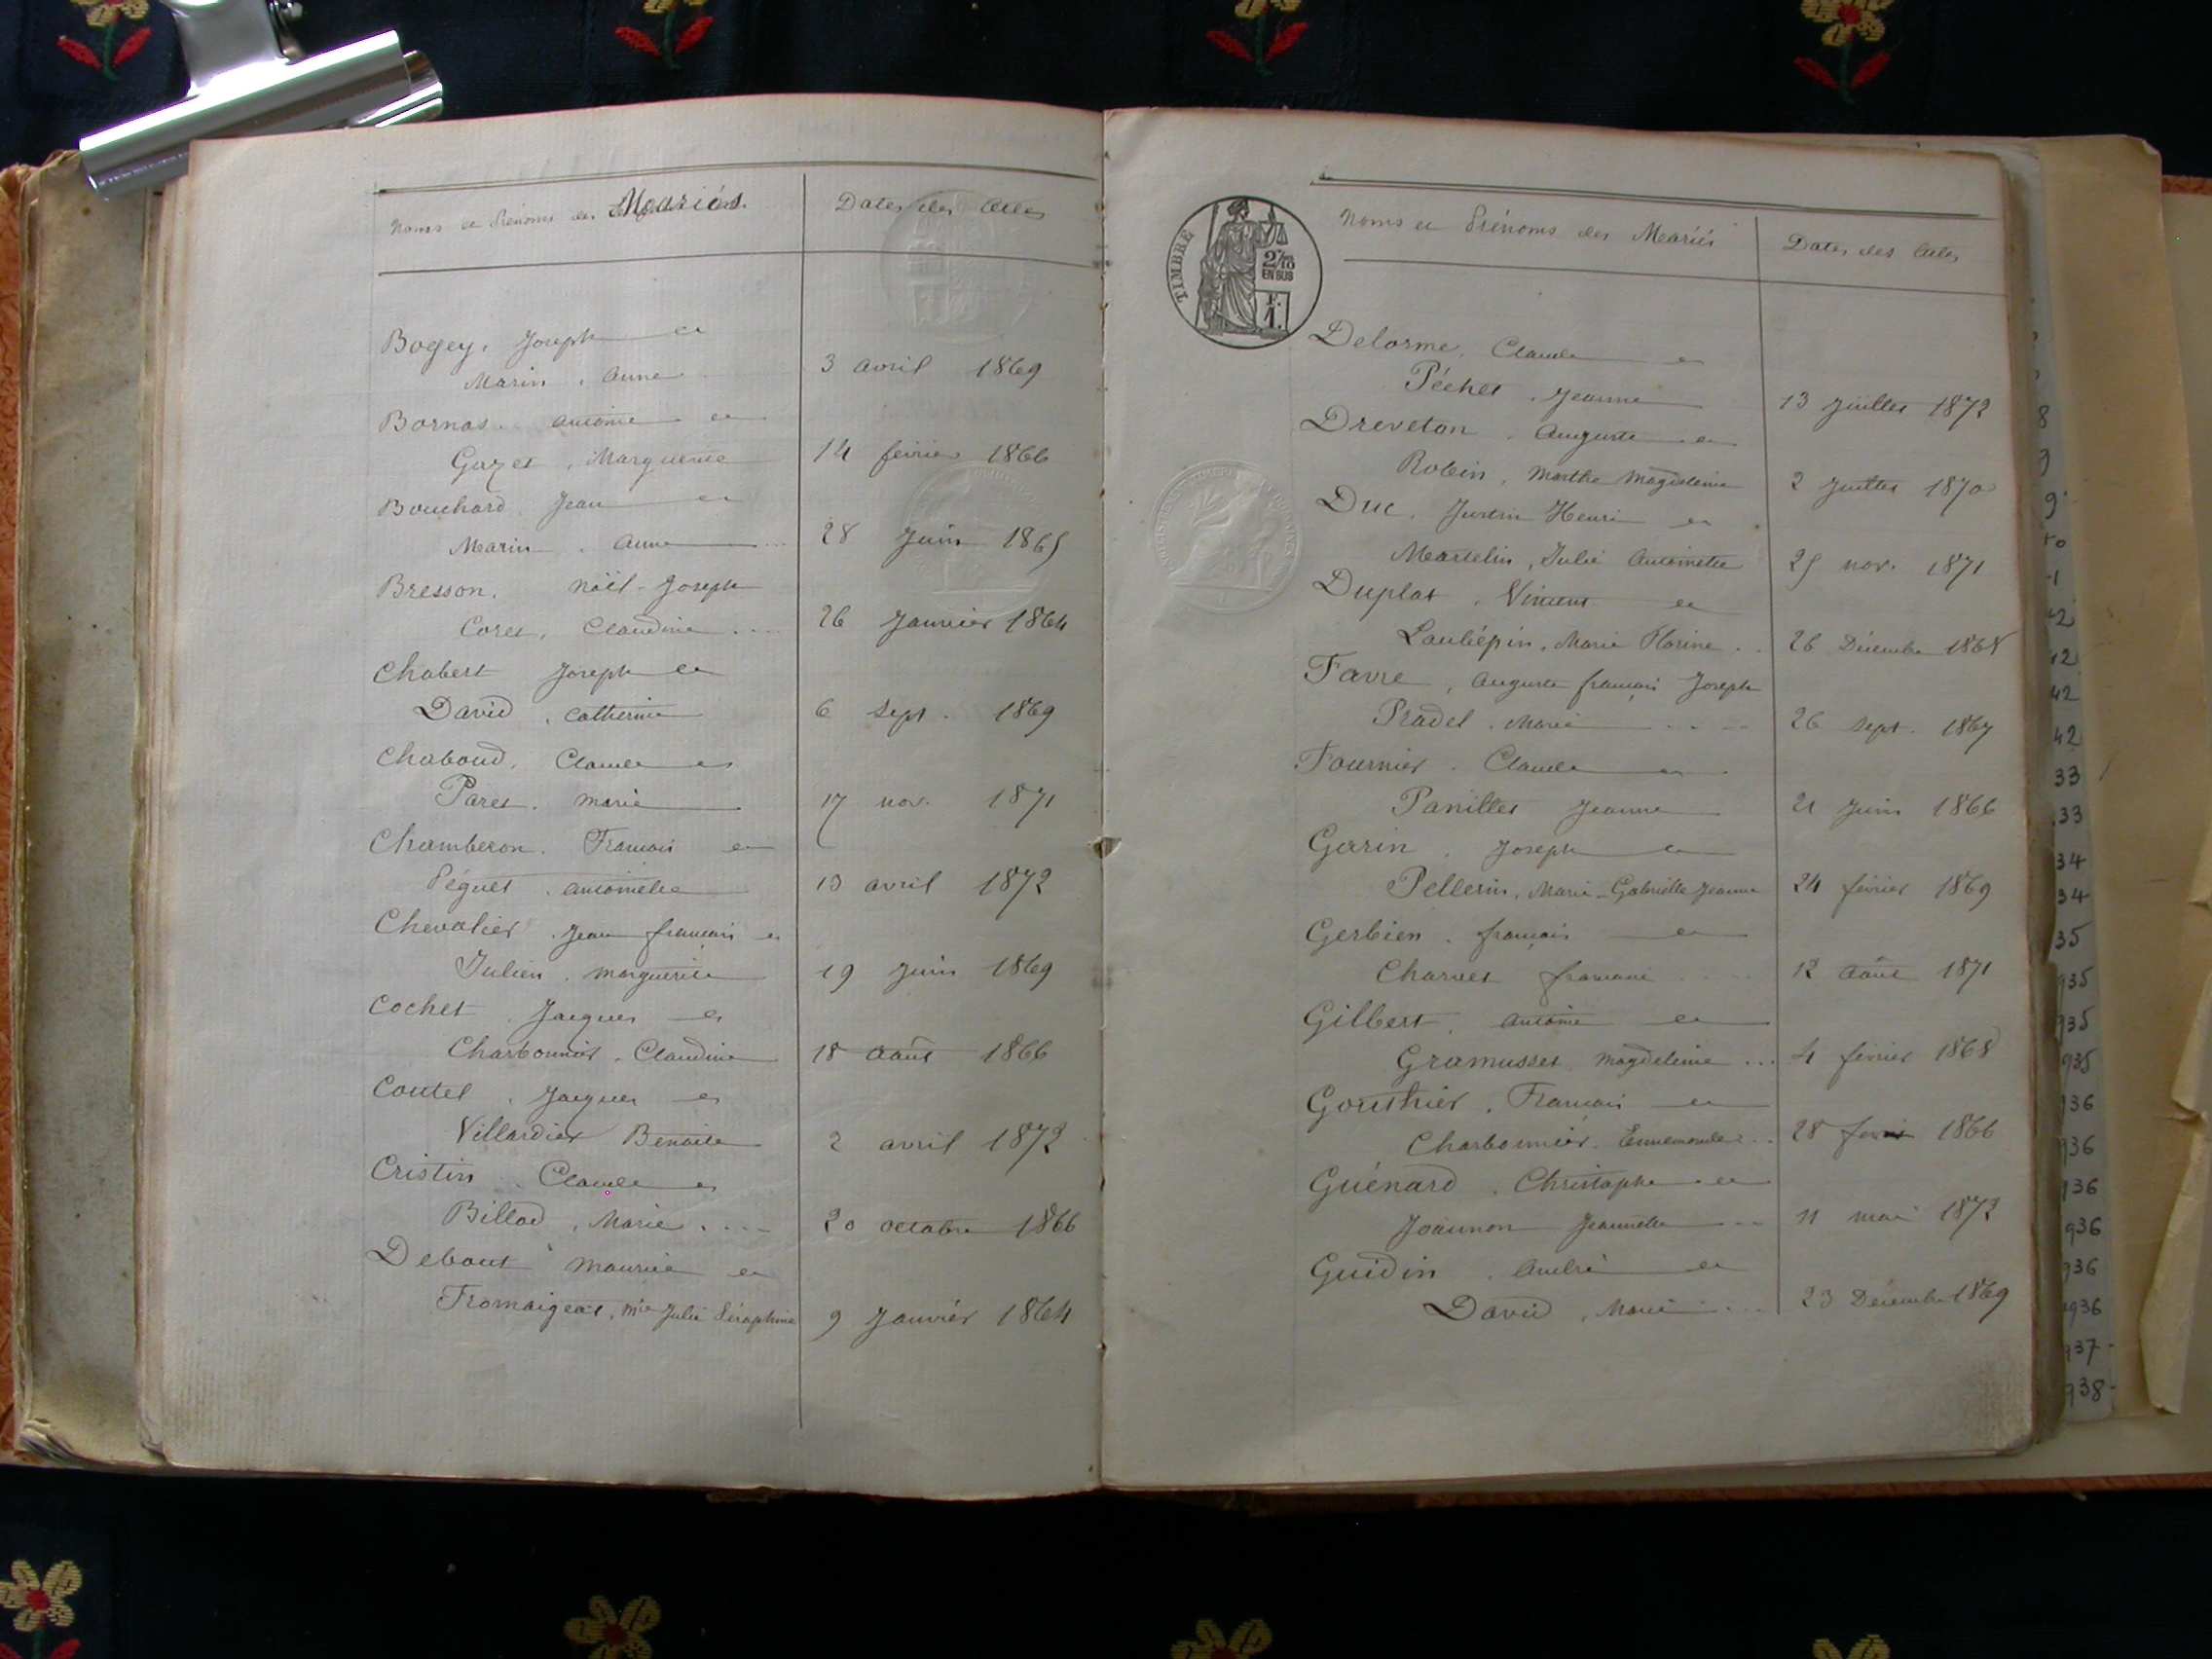 Noms et Prénoms des Mariés.
Dates des Actes
Bogey, Joseph et
Marin, Anne
3 avril 1869
Bornas. Antoine et
Gazet, Marguerite
14 février 1866
Bouchard, Jean et
Marin, Anne
28 Juin 1865
Bresson, Noël-Joseph
Coret, Claudine
26 Janvier 1864
Chabert Joseph et
David, Catherine
6 Sept. 1869
Chaboud, Claude et
Paret, Marie
17 nov. 1871
Chamberon. François et
Péguet, Antoinette
13 avril 1872
Chevalier, Jean François et
Julien, Marguerite
19 Juin 1869
Cochet, Jacques et
Charbonnier, Claudine
18 Août 1866
Coutel, Jacques et
Villardier Benoite
2 avril 1872
Cristin, Claude et
Billad, Marie
20 octobre 1866
Debout Maurice et
Fromaigeat, Mie Julie Séraphine
9 Janvier 1864
TIMBRE
2/10
EN SUS
F.
1.
Noms et Prénoms des Mariés
Dates des Actes
Delorme, Claude et
Péchet, Jeanne
13 Juillet 1872
Dreveton, Auguste et
Robin, Marthe Magdeleine
2 Juillet 1870
Duc, Justin Henri et
Martelin, Julie Antoinette
25 nov. 1871
Duplat, Vincent et
Laulièpin, Marie Florine
26 Décembre 1868
Favre, Auguste François Joseph
Pradel, Marie
26 Sept. 1867
Fournier, Claude et
Panillet Jeanne
21 Juin 1866
Garin, Joseph et
Pellerin, Marie-Gabrielle Jeanne
24 février 1869
Gerbien, François et
Charvet
12 Août 1871
Gilbert, Antoine et
Gramusset Magdeleine
4 février 1868
Gouthier, François et
Charbonnier, Ennemonde
28 1866
Guénard, Christophe et
Joannon Jeannette
11 mai 1872
Guidin, André et
David, Marie
23 Décembre 1869
8
9
9
40
42
42
42
42
33
33
34
34
35
935
935
935
936
936
936
936
936
936
937-
938-